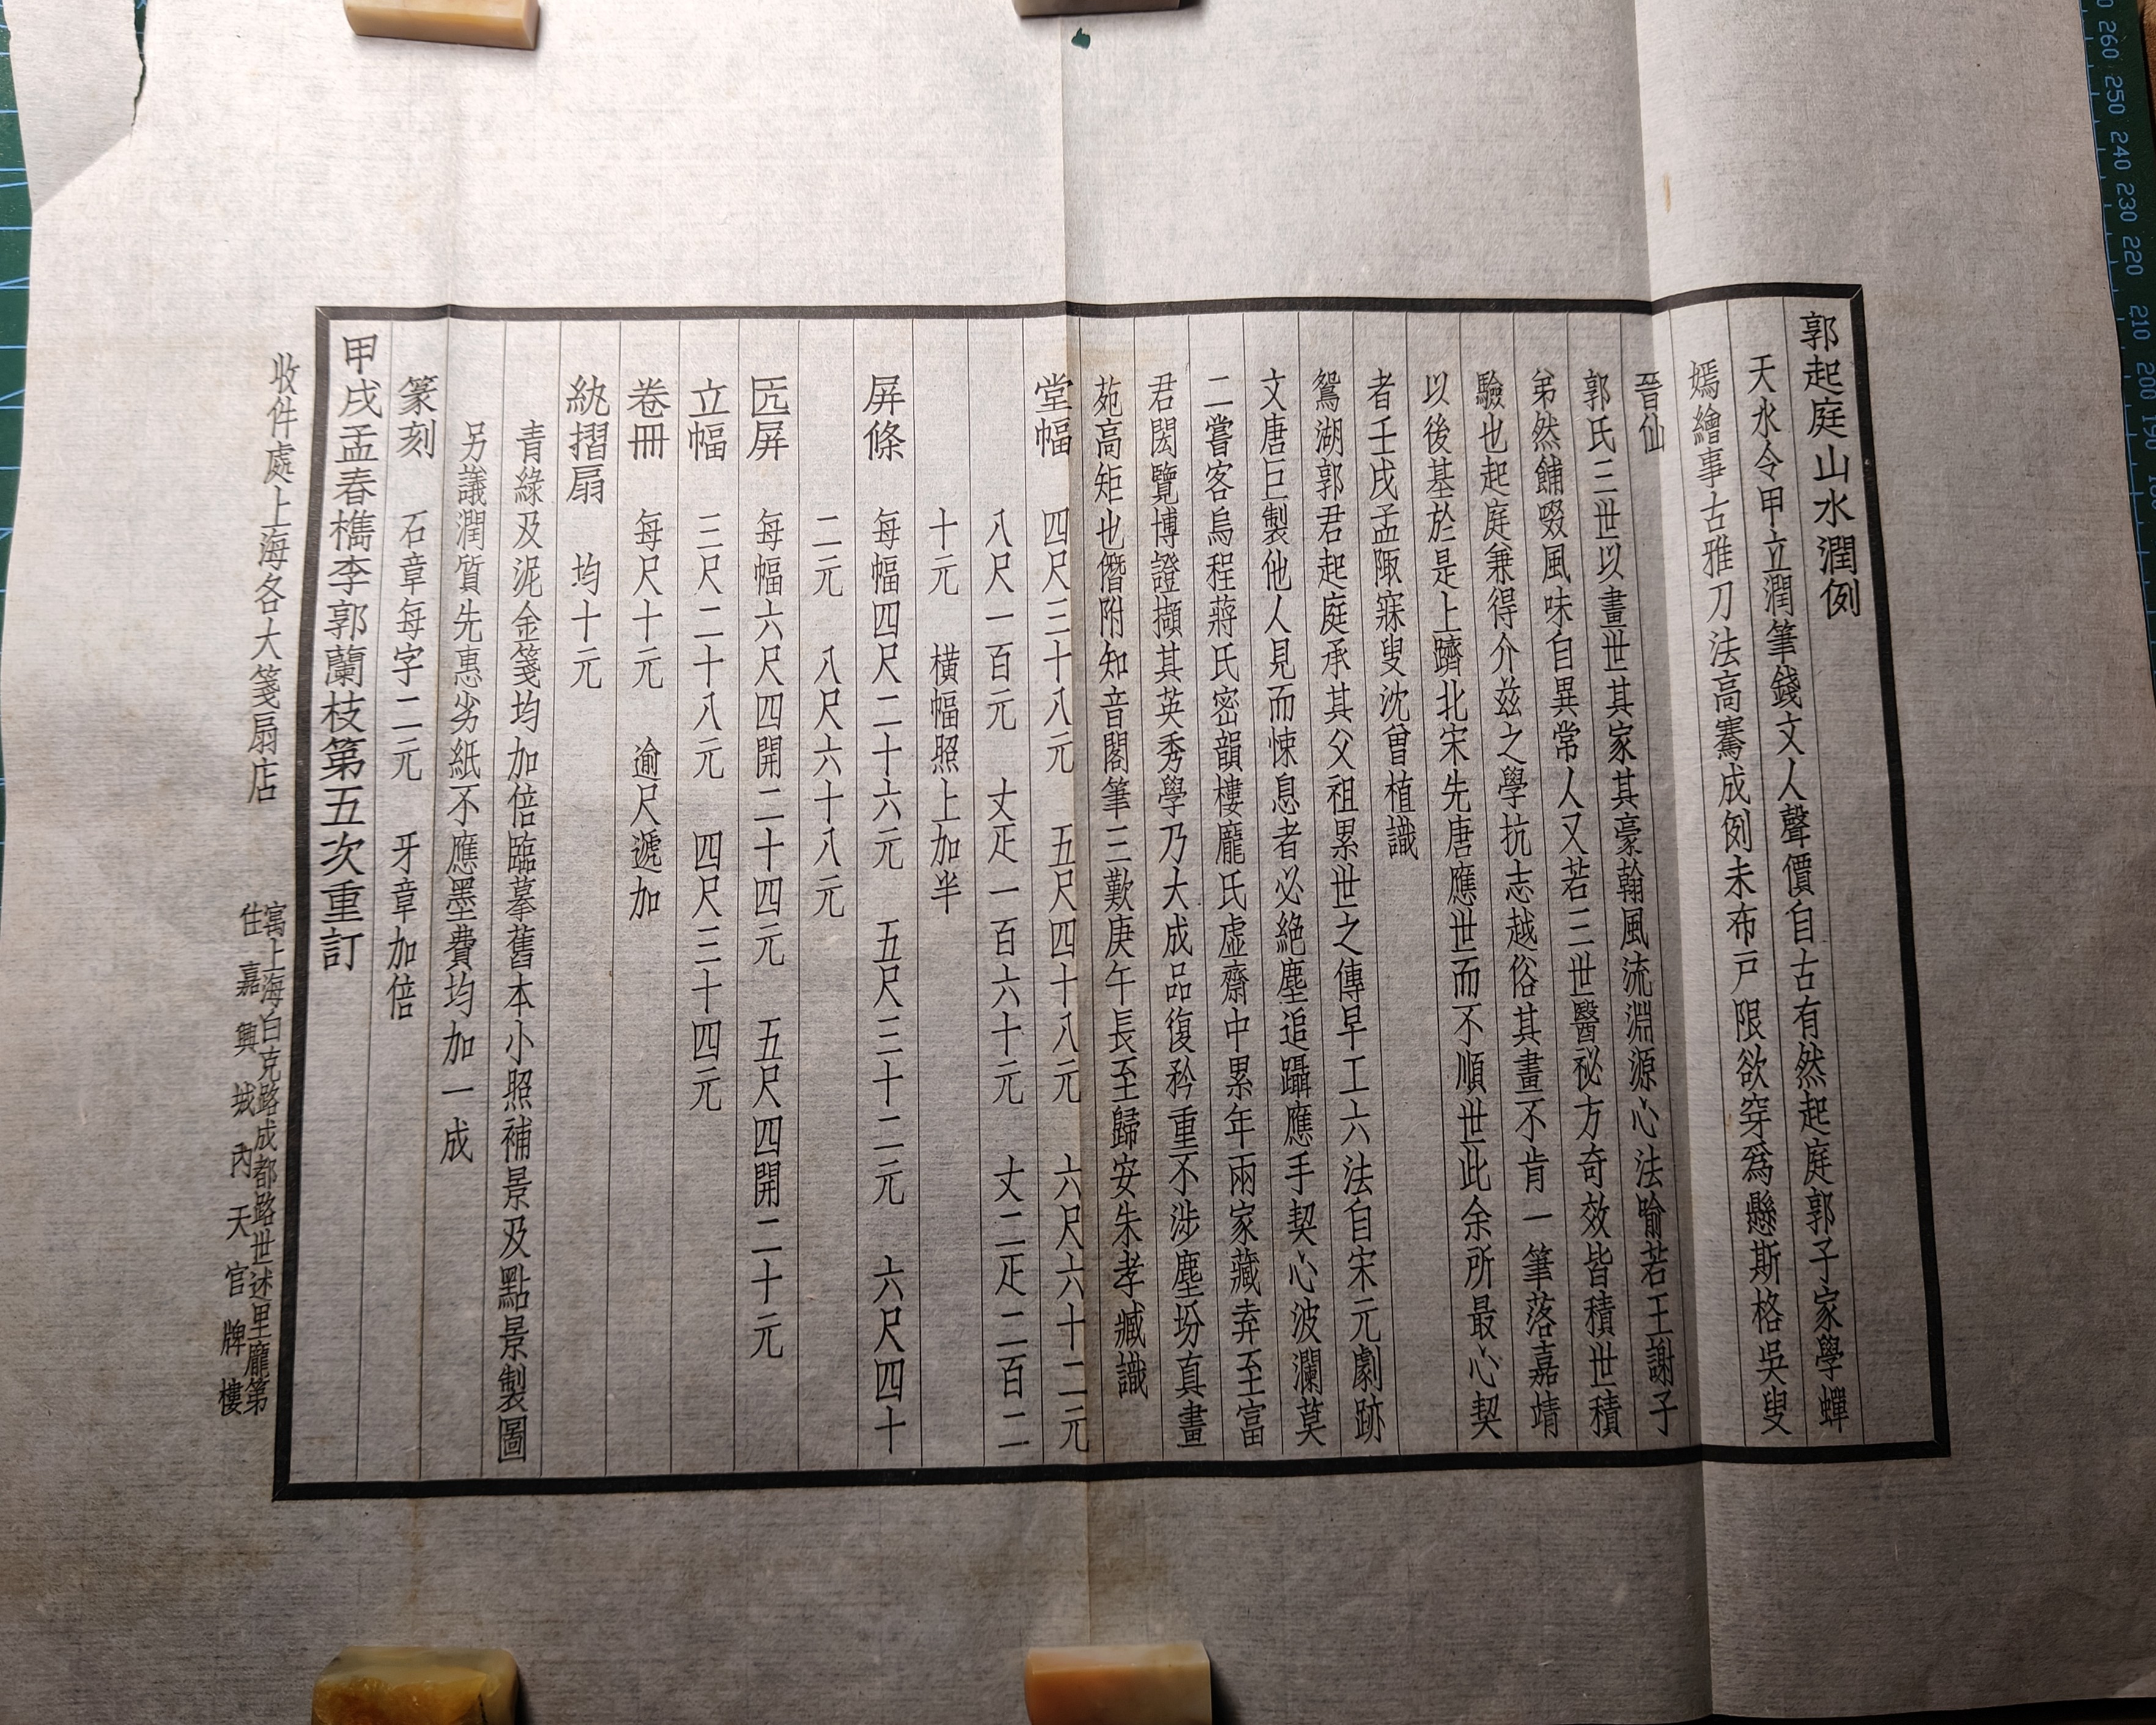 郭起庭山水潤例
天水令甲立潤筆錢文人聲價自古有然起庭郭子家學蟬
嫣繪事古雅刀法高騫成例未布戶限欲穿爲懸斯格吳叟
晉仙
郭氏三世以畫世其家其豪翰風流淵源心法喻若王謝子
弟然餔啜風味自異常人又若三世醫祕方奇效皆積世積
驗也起庭兼得介茲之學抗志越俗其畫不肯一筆落嘉靖
以後基於是上躋北宋先唐應世而不順世此余所最心契
者壬戌孟陬寐叟沈曾植識
鴛湖郭君起庭承其父祖累世之傳早工六法自宋元劇跡
文唐巨製他人見而悚息者必絕塵追躡應手契心波瀾莫
二嘗客烏程蔣氏密韻樓龐氏虛齋中累年兩家藏弆至富
君閎覽博證擷其英秀學乃大成品復矜重不涉塵坋真畫
苑高矩也僭附知音閣筆三歎庚午長至歸安朱孝臧識
堂幅 四尺三十八元 五尺四十八元 六尺六十二元
八尺一百元 丈疋一百六十元 丈二疋二百二
十元 橫幅照上加半
屏條 每幅四尺二十六元 五尺三十二元 六尺四十
二元 八尺六十八元
匹屏 每幅六尺四開二十四元 五尺四開二十元
立幅 三尺二十八元 四尺三十四元
卷冊 每尺十元 逾尺遞加
紈摺扇 均十元
青綠及泥金箋均加倍臨摹舊本小照補景及點景製圖
另議潤質先惠劣紙不應墨費均加一成
篆刻 石章每字二元 牙章加倍
甲戌孟春檇李郭蘭枝第五次重訂
收件處上海各大箋扇店
寓上海白克路成都路世述里龐第
住嘉興城內天官牌樓